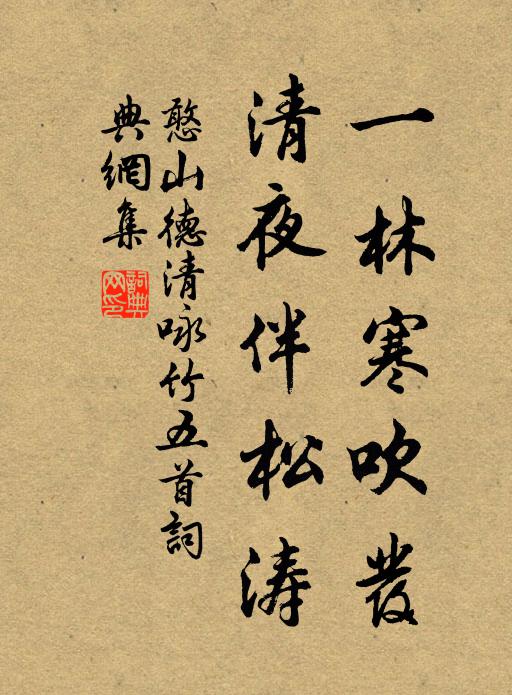 一林寒吹發
清夜伴松濤
憨山德清咏竹五首詞
典網集
詞典
网印